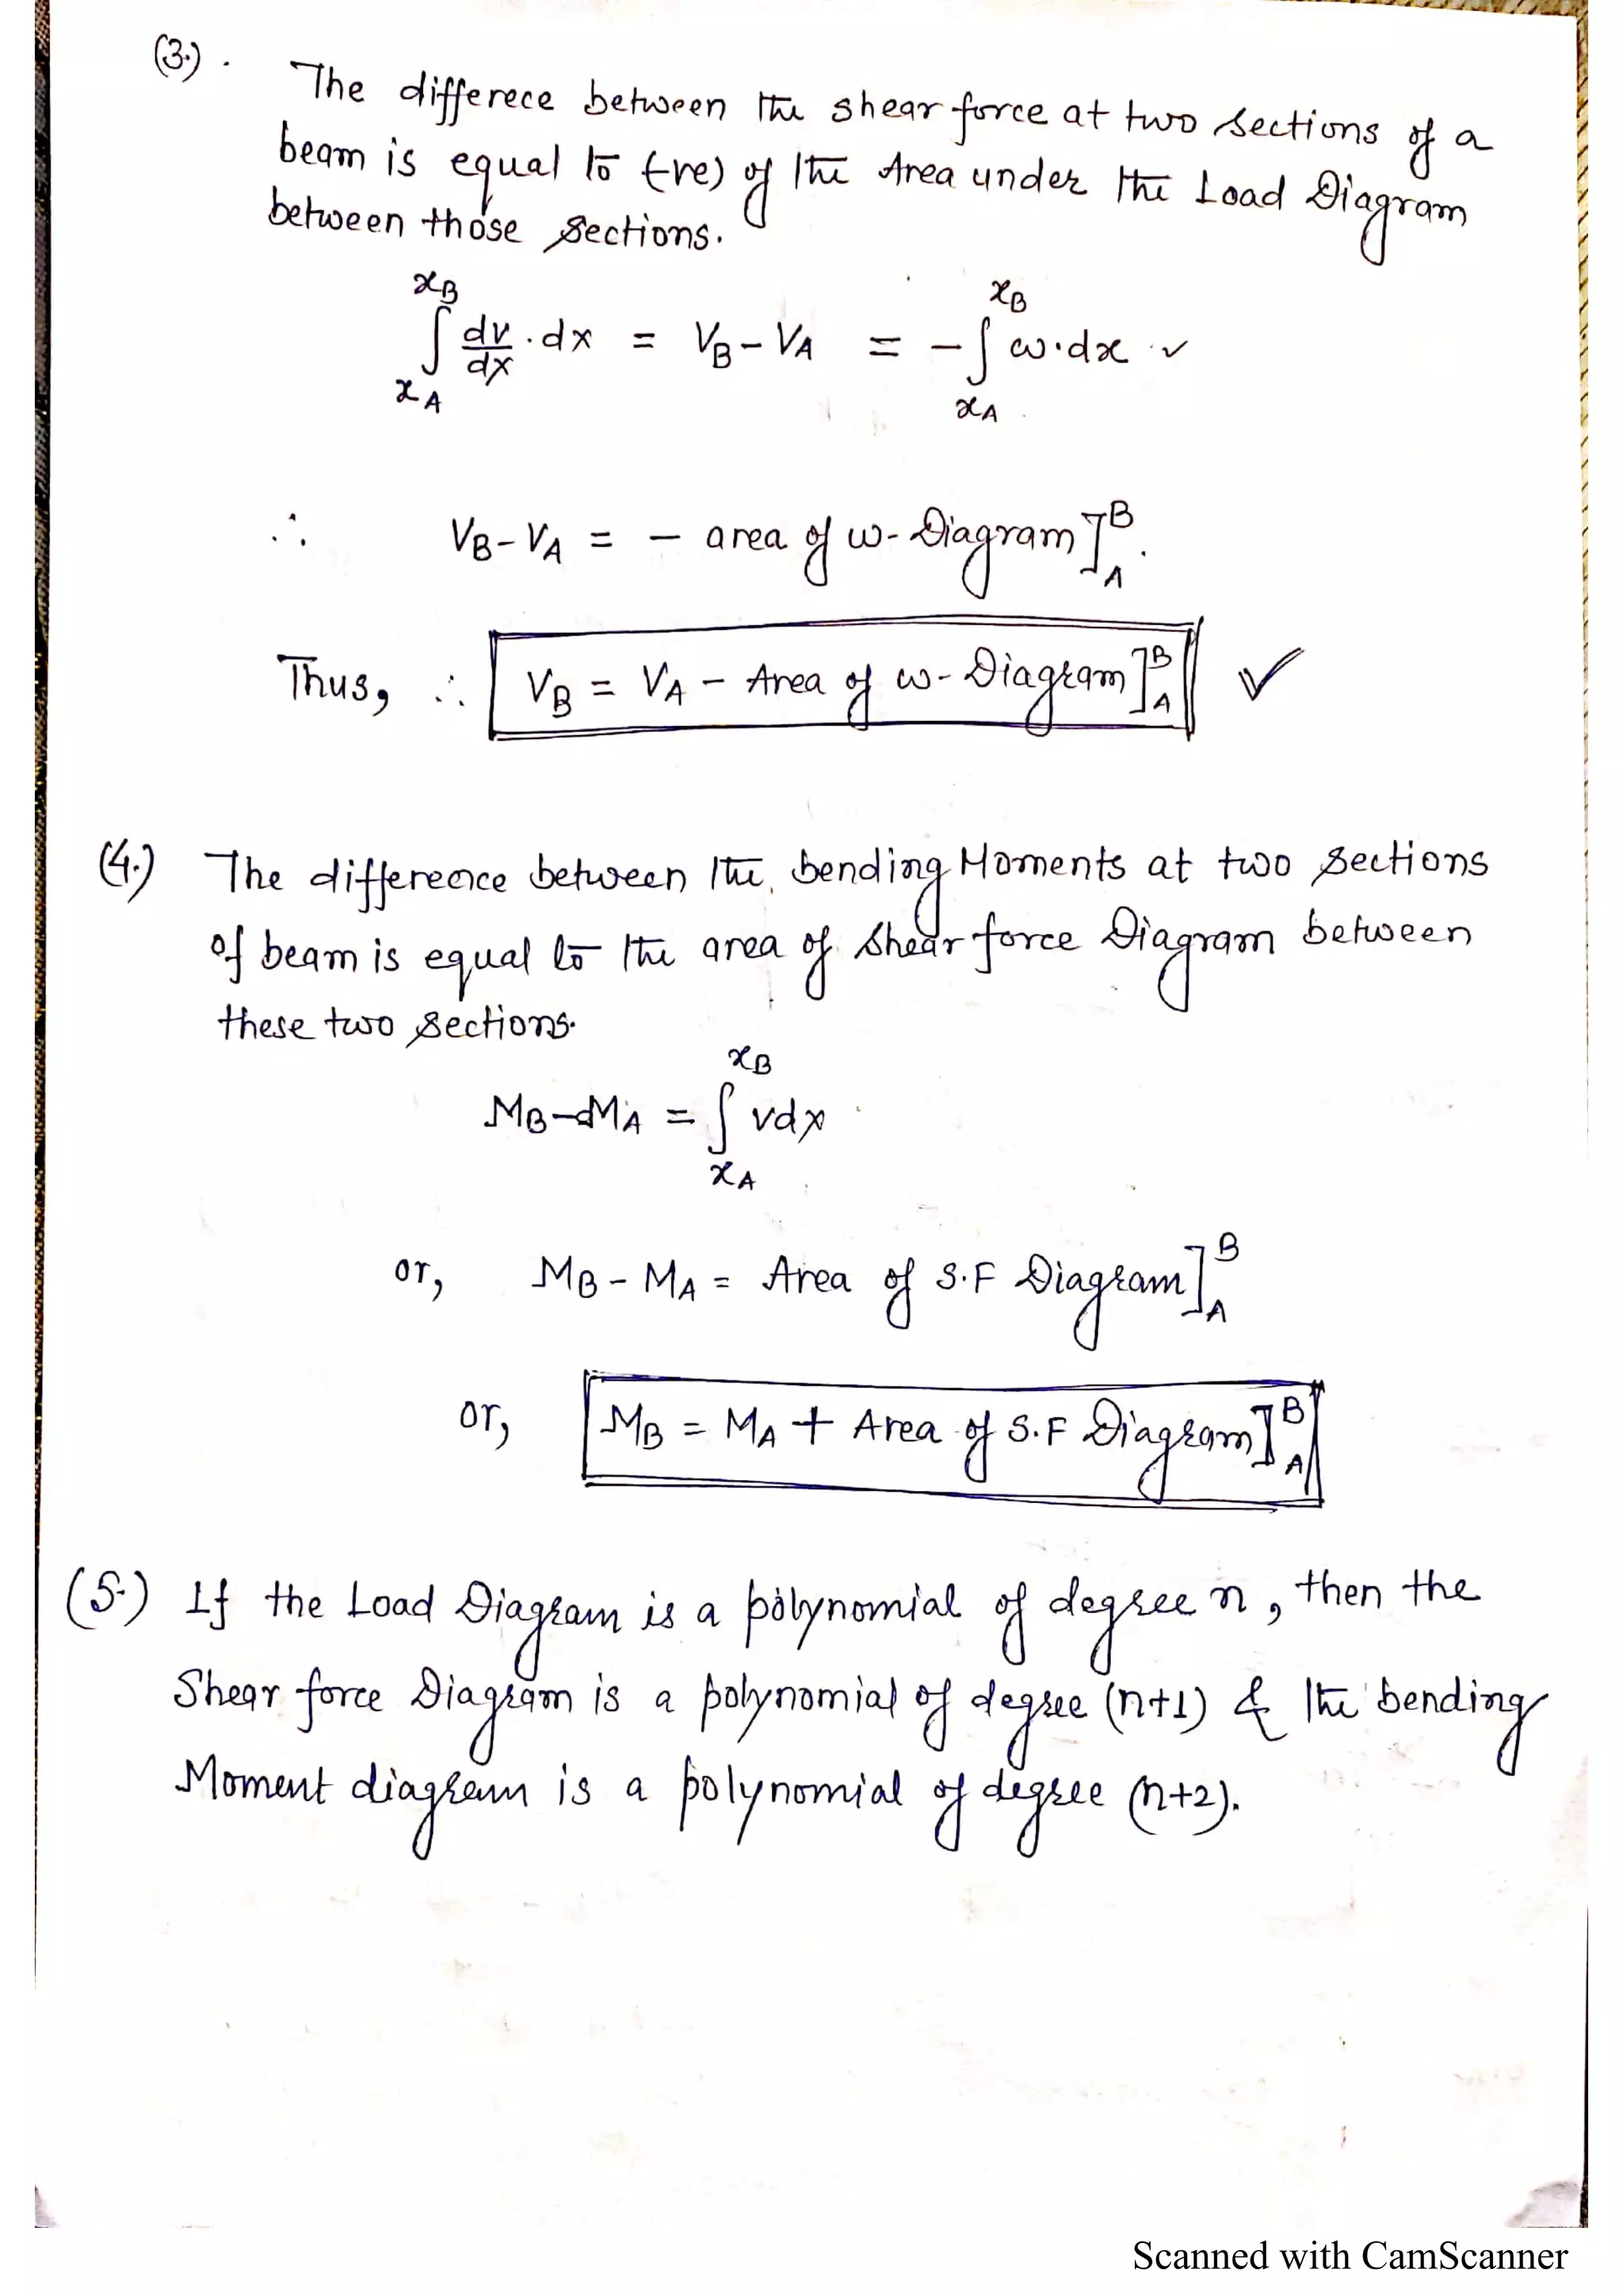 (3.). The differece between the shear force at two sections of a
beam is equal to (-ve) of the Area under the Load Diagram
between those sections.
∫_{xA}^{xB} dv/dx · dx = VB - VA = - ∫_{xA}^{xB} ω·dx ✓
∴ VB - VA = - area of ω- Diagram]_A^B.
Thus, ∴ VB = VA - Area of ω- Diagram]_A^B ✓
(4.) The difference between the, bending Moments at two sections
of beam is equal to the area of shear force Diagram between
these two sections.
MB - MA = ∫_{xA}^{xB} vdx
or, MB - MA = Area of S.F Diagram]_A^B
or, MB = MA + Area of S.F Diagram]_A^B
(5.) If the Load Diagram is a polynomial of degree n, then the
Shear force Diagram is a polynomial of degree (n+1) & the bending
Moment diagram is a polynomial of degree (n+2).
Scanned with CamScanner